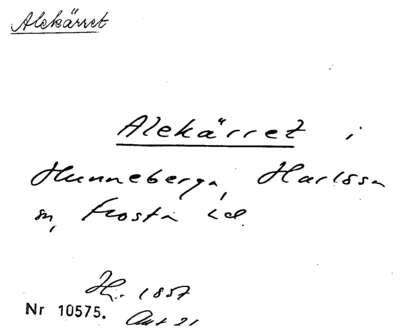 Alekärret
Alekärret i
Hunneberga, Harlösa
sn, Frosta hd.
Hr. 1857
Nr 10575. Akt 21